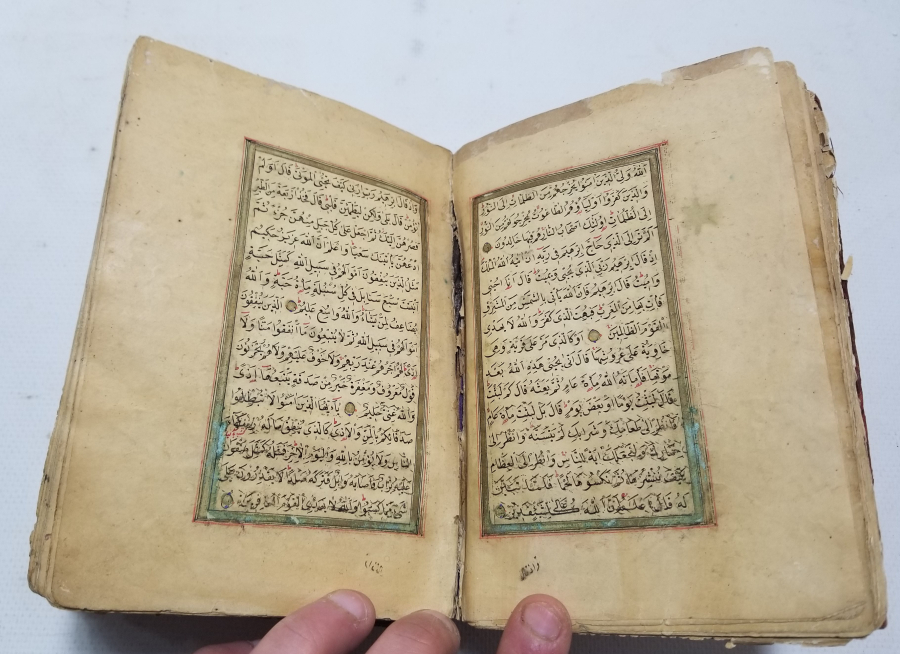 الله ولي الذين امنوا يخرجهم من الظلمات الى النور
والذين كفروا اولياؤهم الطاغوت يخرجونهم من النور
الى الظلمات اولئك اصحاب النار هم فيها خالدون
الم تر الى الذي حاج ابرهيم في ربه ان اتيه الله الملك
اذ قال ابرهيم ربي الذي يحيي ويميت قال انا احيي
واميت قال ابرهيم فان الله يأتي بالشمس من المشرق
فأت بها من المغرب فبهت الذي كفر والله لا يهدي
القوم الظالمين او كالذي مر على قرية وهي
خاوية على عروشها قال انى يحيي هذه الله بعد
موتها فاماته الله مائة عام ثم بعثه قال كم لبثت
قال لبثت يوما او بعض يوم قال بل لبثت مائة عام
فانظر الى طعامك وشرابك لم يتسنه وانظر الى
حمارك ولنجعلك اية للناس وانظر الى العظام
كيف ننشزها ثم نكسوها لحما فلما تبين
له قال اعلم ان الله على كل شيء قدير
واذ قال
واذ قال ابرهيم رب ارني كيف تحيي الموتى قال اولم
تؤمن قال بلى ولكن ليطمئن قلبي قال فخذ اربعة من الطير
فصرهن اليك ثم اجعل على كل جبل منهن جزءا ثم
ادعهن يأتينك سعيا واعلم ان الله عزيز حكيم
مثل الذين ينفقون اموالهم في سبيل الله كمثل حبة
انبتت سبع سنابل في كل سنبلة مائة حبة والله
يضاعف لمن يشاء والله واسع عليم الذين ينفقون
اموالهم في سبيل الله ثم لا يتبعون ما انفقوا منا ولا
اذى لهم اجرهم عند ربهم ولا خوف عليهم ولا هم يحزنون
قول معروف ومغفرة خير من صدقة يتبعها اذى
والله غني حليم يا ايها الذين امنوا لا تبطلوا
صدقاتكم بالمن والاذى كالذي ينفق ماله رئاء
الناس ولا يؤمن بالله واليوم الاخر فمثله كمثل صفوان
عليه تراب فاصابه وابل فتركه صلدا لا يقدرون على
شيء مما كسبوا والله لا يهدي القوم الكافرين